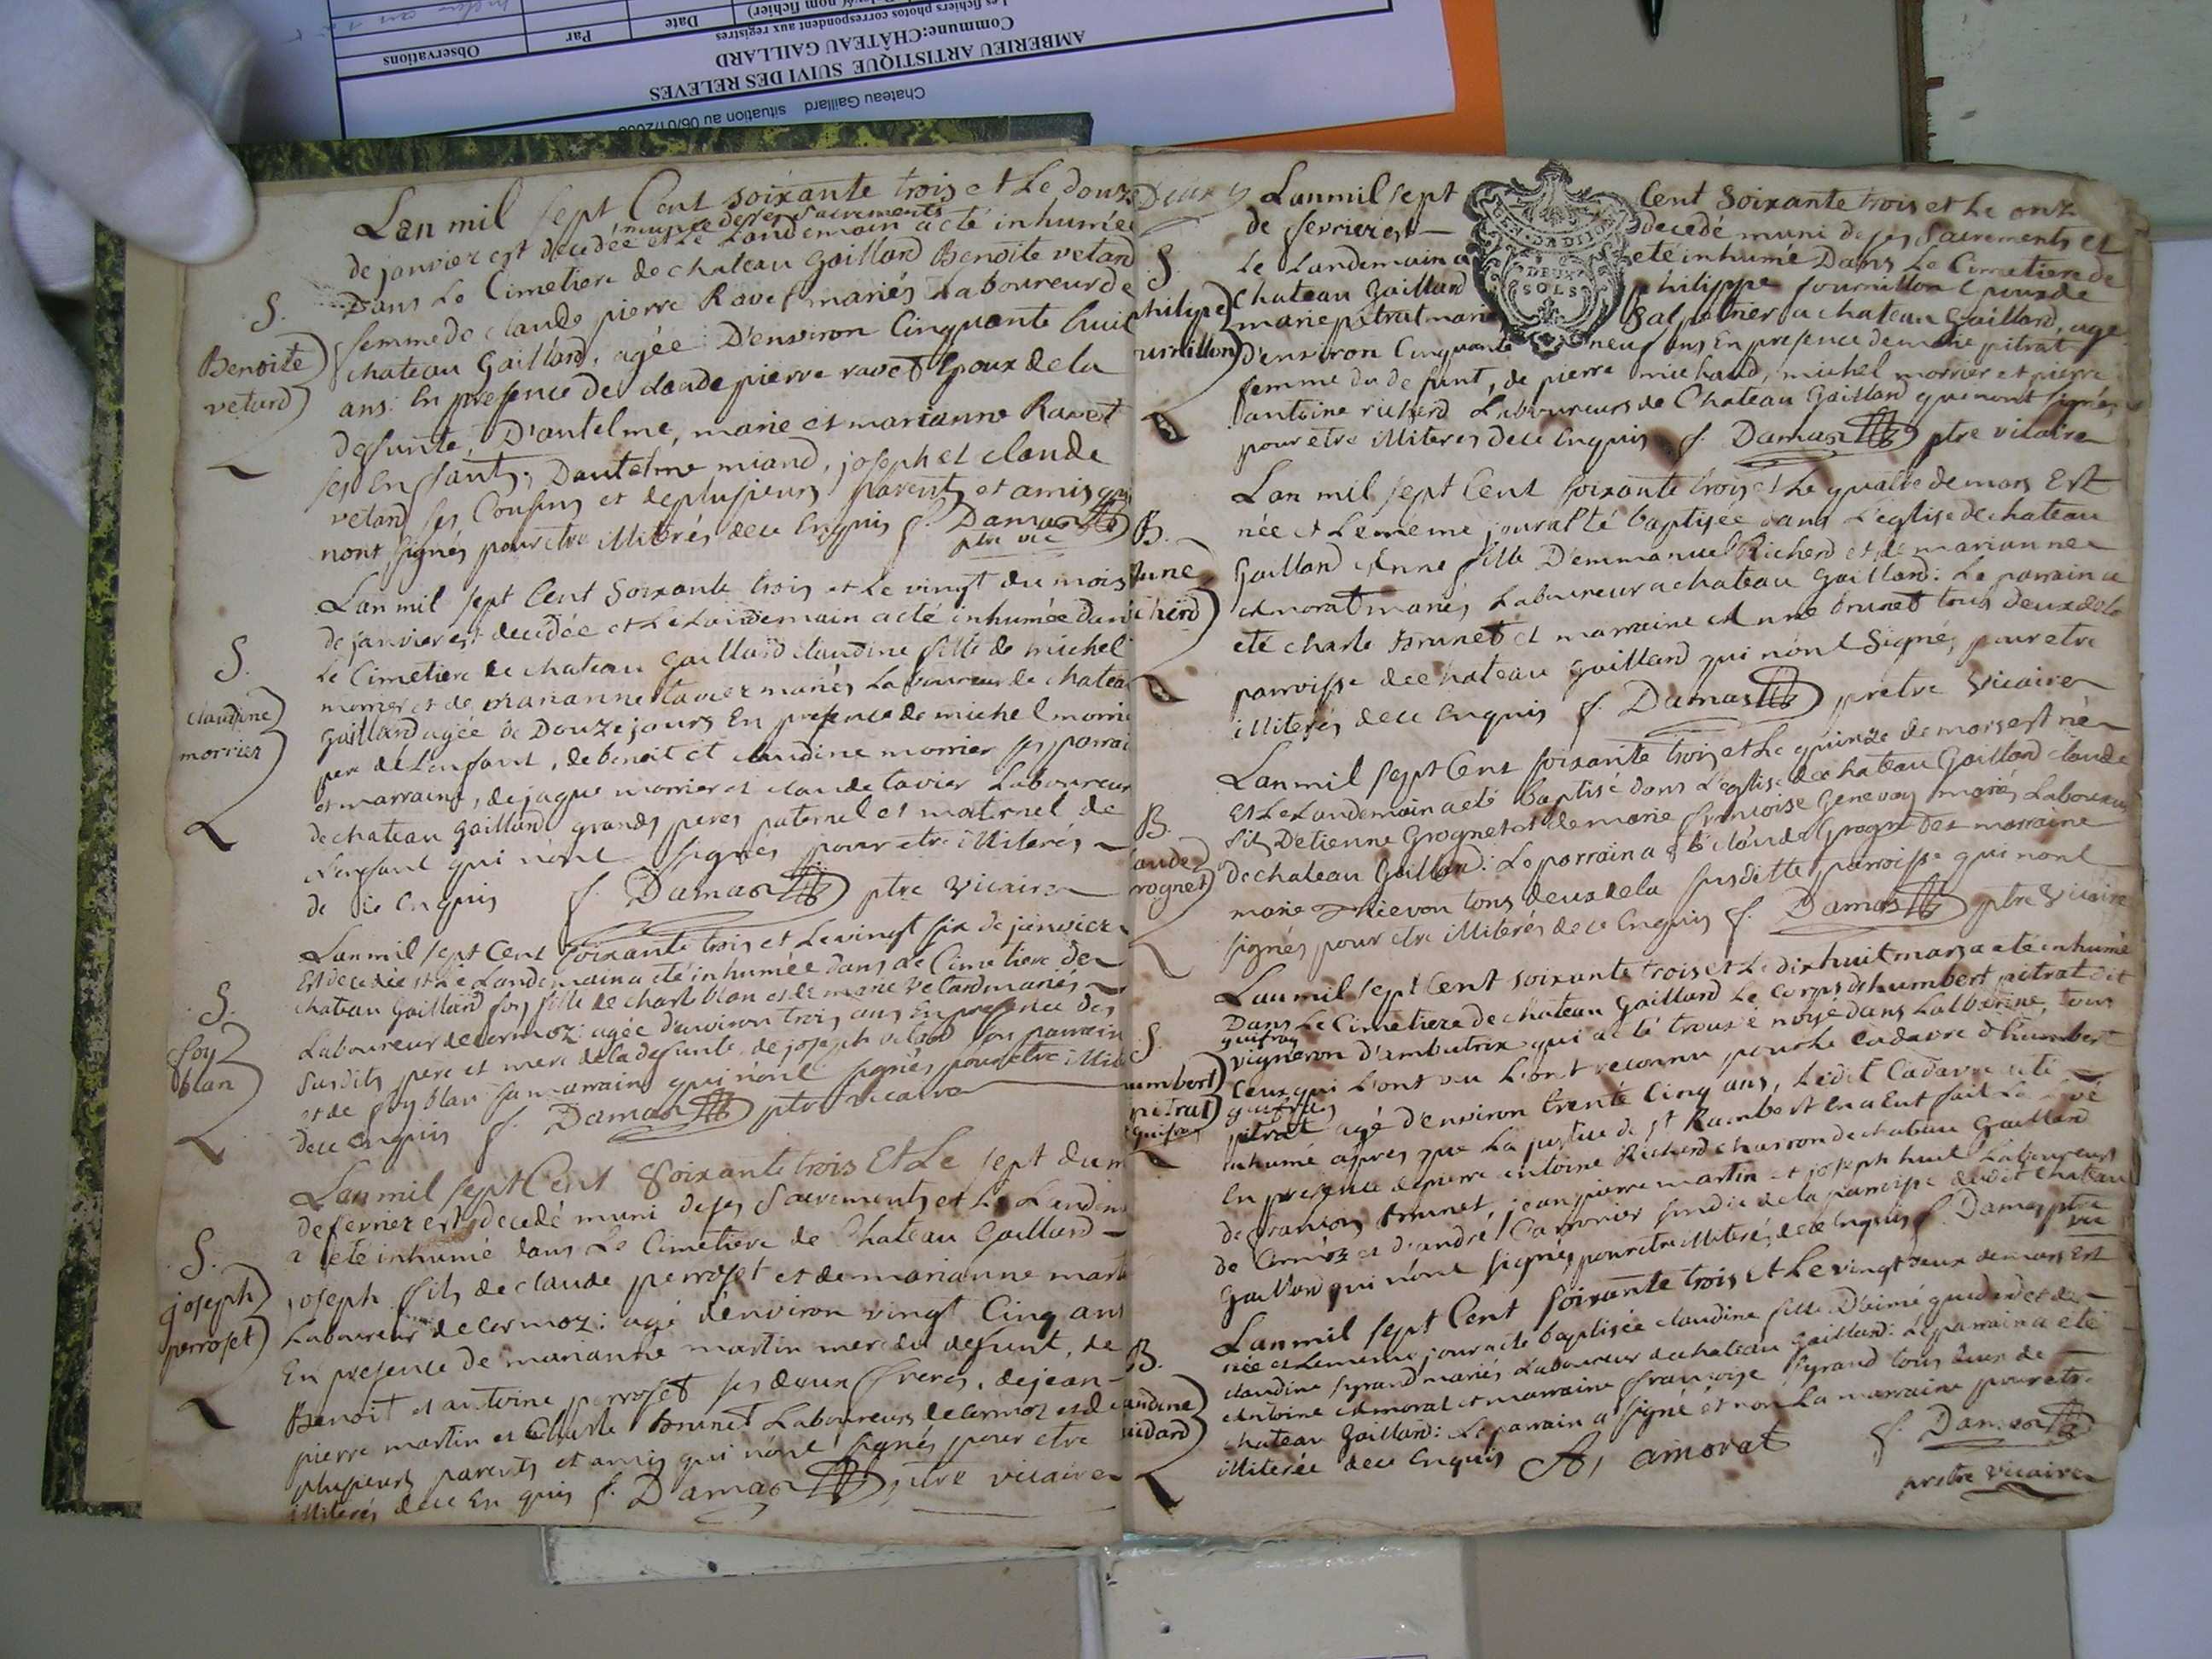 Chateau Gaillard situation au 06/01/200
AMBERIEU ARTISTIQUE SUIVI DES RELEVES
Commune:CHÂTEAU GAILLARD
Les fichiers photos correspondent aux registres
nom fichier)
Date
Par
Observations
Lan mil sept Cent soixante trois et Le douze
munie de ses sacrements
de janvier est décedée et Le Landemain a eté inhumée
Dans Le Cimetiere de chateau Gaillard Benoite vetard
femme de claude pierre Ravet mariés Laboureur de
chateau Gaillard, agée D'environ Cinquante huit
ans. En presence de claude pierre ravet Epoux de la
defunte, D'antelme, marie et marianne Ravet
ses Enfants, Dantelme miand, joseph et claude
vetard ses Cousins et de plusieurs parents et amis qui
nont signés pour etre illiterés de ce Enquis f. Damas
ptre vic
S.
Benoite
vetard
Lan mil sept Cent Soixante trois et Le vingt du mois
de janvier est decedée et Le Landemain a eté inhumée Dans
Le Cimetiere de chateau Gaillard claudine fille de michel
morrier et de marianne tavier mariés Laboureur de chateau
Gaillard agée de Douze jours En presence de michel morrier
pere de L'enfant, de benoit et claudine morrier ses parrain
et marraine, de jaque morrier et claude tavier Laboureur
de chateau Gaillard grands peres paternel et maternel de
L'enfant qui n'ont signés pour etre illiterés
de ce Enquis f. Damas ptre vicaire
S.
claudine
morrier
Lan mil sept Cent soixante trois et Le vingt six de janvier
Est decedée et Le Landemain a eté inhumée dans Le Cimetiere de
chateau Gaillard foy fille de charle blan et de marie vetard mariés
Laboureur de cormoz: agée d'environ trois ans En presence des
susdits pere et mere de la defunte de joseph vetard son parrain
et de foy blan sa marraine qui n'ont signés pour etre illite
de ce enquis f. Damas ptre vicaire
S.
foy
blan
Lan mil sept Cent Soixante trois Et Le sept du m
de fevrier est decedé muni de ses Sacrements et Le Landem
a eté inhumé dans Le Cimetiere de Chateau Gaillard
joseph fils de claude perroset et de marianne mart
Laboureur de cormoz: agé d'environ vingt Cinq ans
En presence de marianne martin mere du defunt, de
Benoit et antoine perroset ses deux freres, de jean
pierre martin et Charle brunet Laboureurs de Cormoz et de
plusieurs parents et amis qui n'ont signés pour etre
illiterés de ce Enquis f. Damas ptre vicaire
S.
joseph
perroset
Deux
Lan mil sept Cent Soixante trois et Le onze
de fevrier est decedé muni de ses Sacrements et
Le Landemain a eté inhumé Dans Le Cimetiere de
Chateau Gaillard philippe fournillon Epoux de
marie pitrat mariés Salpetrier a chateau Gaillard, agé
d'environ Cinquante neuf ans En presence de marie pitrat
femme du defunt, de pierre michaud, michel morrier et pierre
antoine richerd Laboureurs de Chateau Gaillard qui n'ont signés
pour etre illiterés de ce Enquis f. Damas ptre vicaire
DEUX
SOLS
S.
philipe
urnillon
Lan mil sept Cent soixante trois et Le quatre de mars Est
née et Le meme jour a eté baptisée dans L'eglise de chateau
Gaillard Anne fille D'emmanuel Richerd et de marianne
Amorat mariés Laboureur a chateau Gaillard: Le parrain a
eté charle brunet et marraine Anne brunet tous deux de la
parroisse de chateau Gaillard qui n'ont Signés pour etre
illiterés de ce Enquis f. Damas pretre vicaire
B.
Anne
cherd
Lan mil sept Cent soixante trois et Le quinze de mars est né
Et Le Landemain a eté baptisé dans L'eglise de chateau Gaillard claude
fils D'etienne Grognet et de marie françoise Genevay mariés Laboureur
de chateau Gaillard: Le parrain a eté claude Grognet et marraine
marie Thievon tous deux de la susditte parroisse qui n'ont
signés pour etre illiterés de ce Enquis f. Damas ptre vicaire
B.
laude
rognet
Lan mil sept Cent soixante trois et Le dix huit mars a eté inhumé
Dans Le Cimetiere de chateau Gaillard Le corps d'humbert pitrat dit
guifray
vigneron d'ambutrix qui a eté trouvé noyé dans L'albarine, tous
Ceux qui L'ont vu L'ont reconnu pour Le cadavre d'humbert
guifray
pitrat agé d'environ trente Cinq ans, Ledit Cadavre a eté
inhumé apres que La justice de st Rambert en a Eut fait La Levé
En presence de pierre antoine Richerd charron de chateau Gaillard
de françois brunet, jean pierre martin et joseph huit Laboureurs
de Cormoz et d'andré Carronier sindic de la parroisse dudit chateau
Gaillard qui n'ont signés pour etre illiterés de ce Enquis f. Damas ptre
vic
S.
umbert
pitrat
guifray
Lan mil sept Cent soixante trois et Le vingt deux de mars Est
née et Le meme jour a eté baptisée claudine fille D'aimé guidard et de
claudine syrand mariés Laboureur de chateau Gaillard: Le parrain a eté
Antoine Amorat et marraine françoise Syrand tous deux de
chateau Gaillard: Le parrain a signé et non La marraine pour etre
illiterée de ce Enquis A, amorat f. Damas
pretre vicaire
B.
audine
uidard